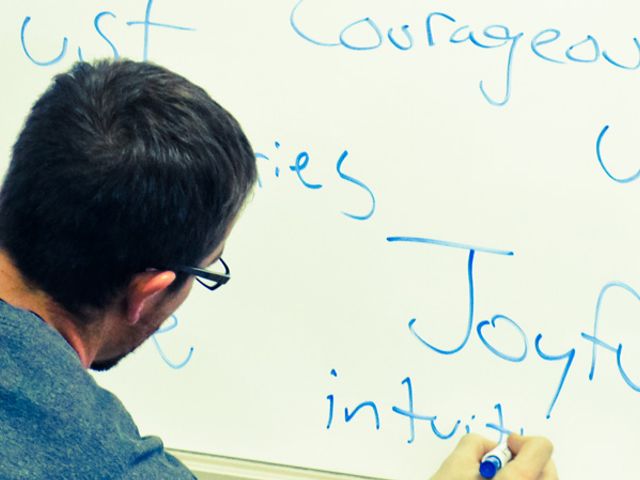 ust Courageou
ries
Joyfu
intuit